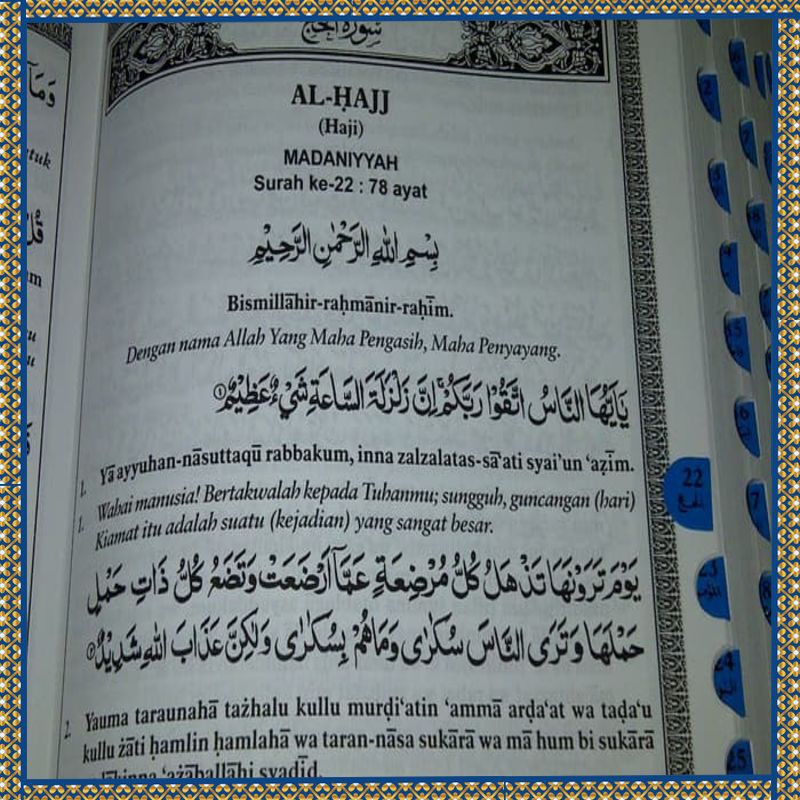 سورة الحج
AL-ḤAJJ
(Haji)
MADANIYYAH
Surah ke-22 : 78 ayat
بِسْمِ اللّٰهِ الرَّحْمٰنِ الرَّحِيْمِ
Bismillāhir-raḥmānir-raḥīm.
Dengan nama Allah Yang Maha Pengasih, Maha Penyayang.
يٰٓاَيُّهَا النَّاسُ اتَّقُوْا رَبَّكُمْۚ اِنَّ زَلْزَلَةَ السَّاعَةِ شَيْءٌ عَظِيْمٌ ١
1. Yā ayyuhan-nāsuttaqū rabbakum, inna zalzalatas-sā‘ati syai'un ‘aẓīm.
1. Wahai manusia! Bertakwalah kepada Tuhanmu; sungguh, guncangan (hari)
Kiamat itu adalah suatu (kejadian) yang sangat besar.
يَوْمَ تَرَوْنَهَا تَذْهَلُ كُلُّ مُرْضِعَةٍ عَمَّآ اَرْضَعَتْ وَتَضَعُ كُلُّ ذَاتِ حَمْلٍ
حَمْلَهَا وَتَرَى النَّاسَ سُكٰرٰى وَمَا هُمْ بِسُكٰرٰى وَلٰكِنَّ عَذَابَ اللّٰهِ شَدِيْدٌ ٢
2. Yauma taraunahā tażhalu kullu murḍi‘atin ‘ammā arḍa‘at wa taḍa‘u
kullu żāti ḥamlin ḥamlahā wa taran-nāsa sukārā wa mā hum bi sukārā
‘ażāballāhi syadīd.
22
الحج
24
25